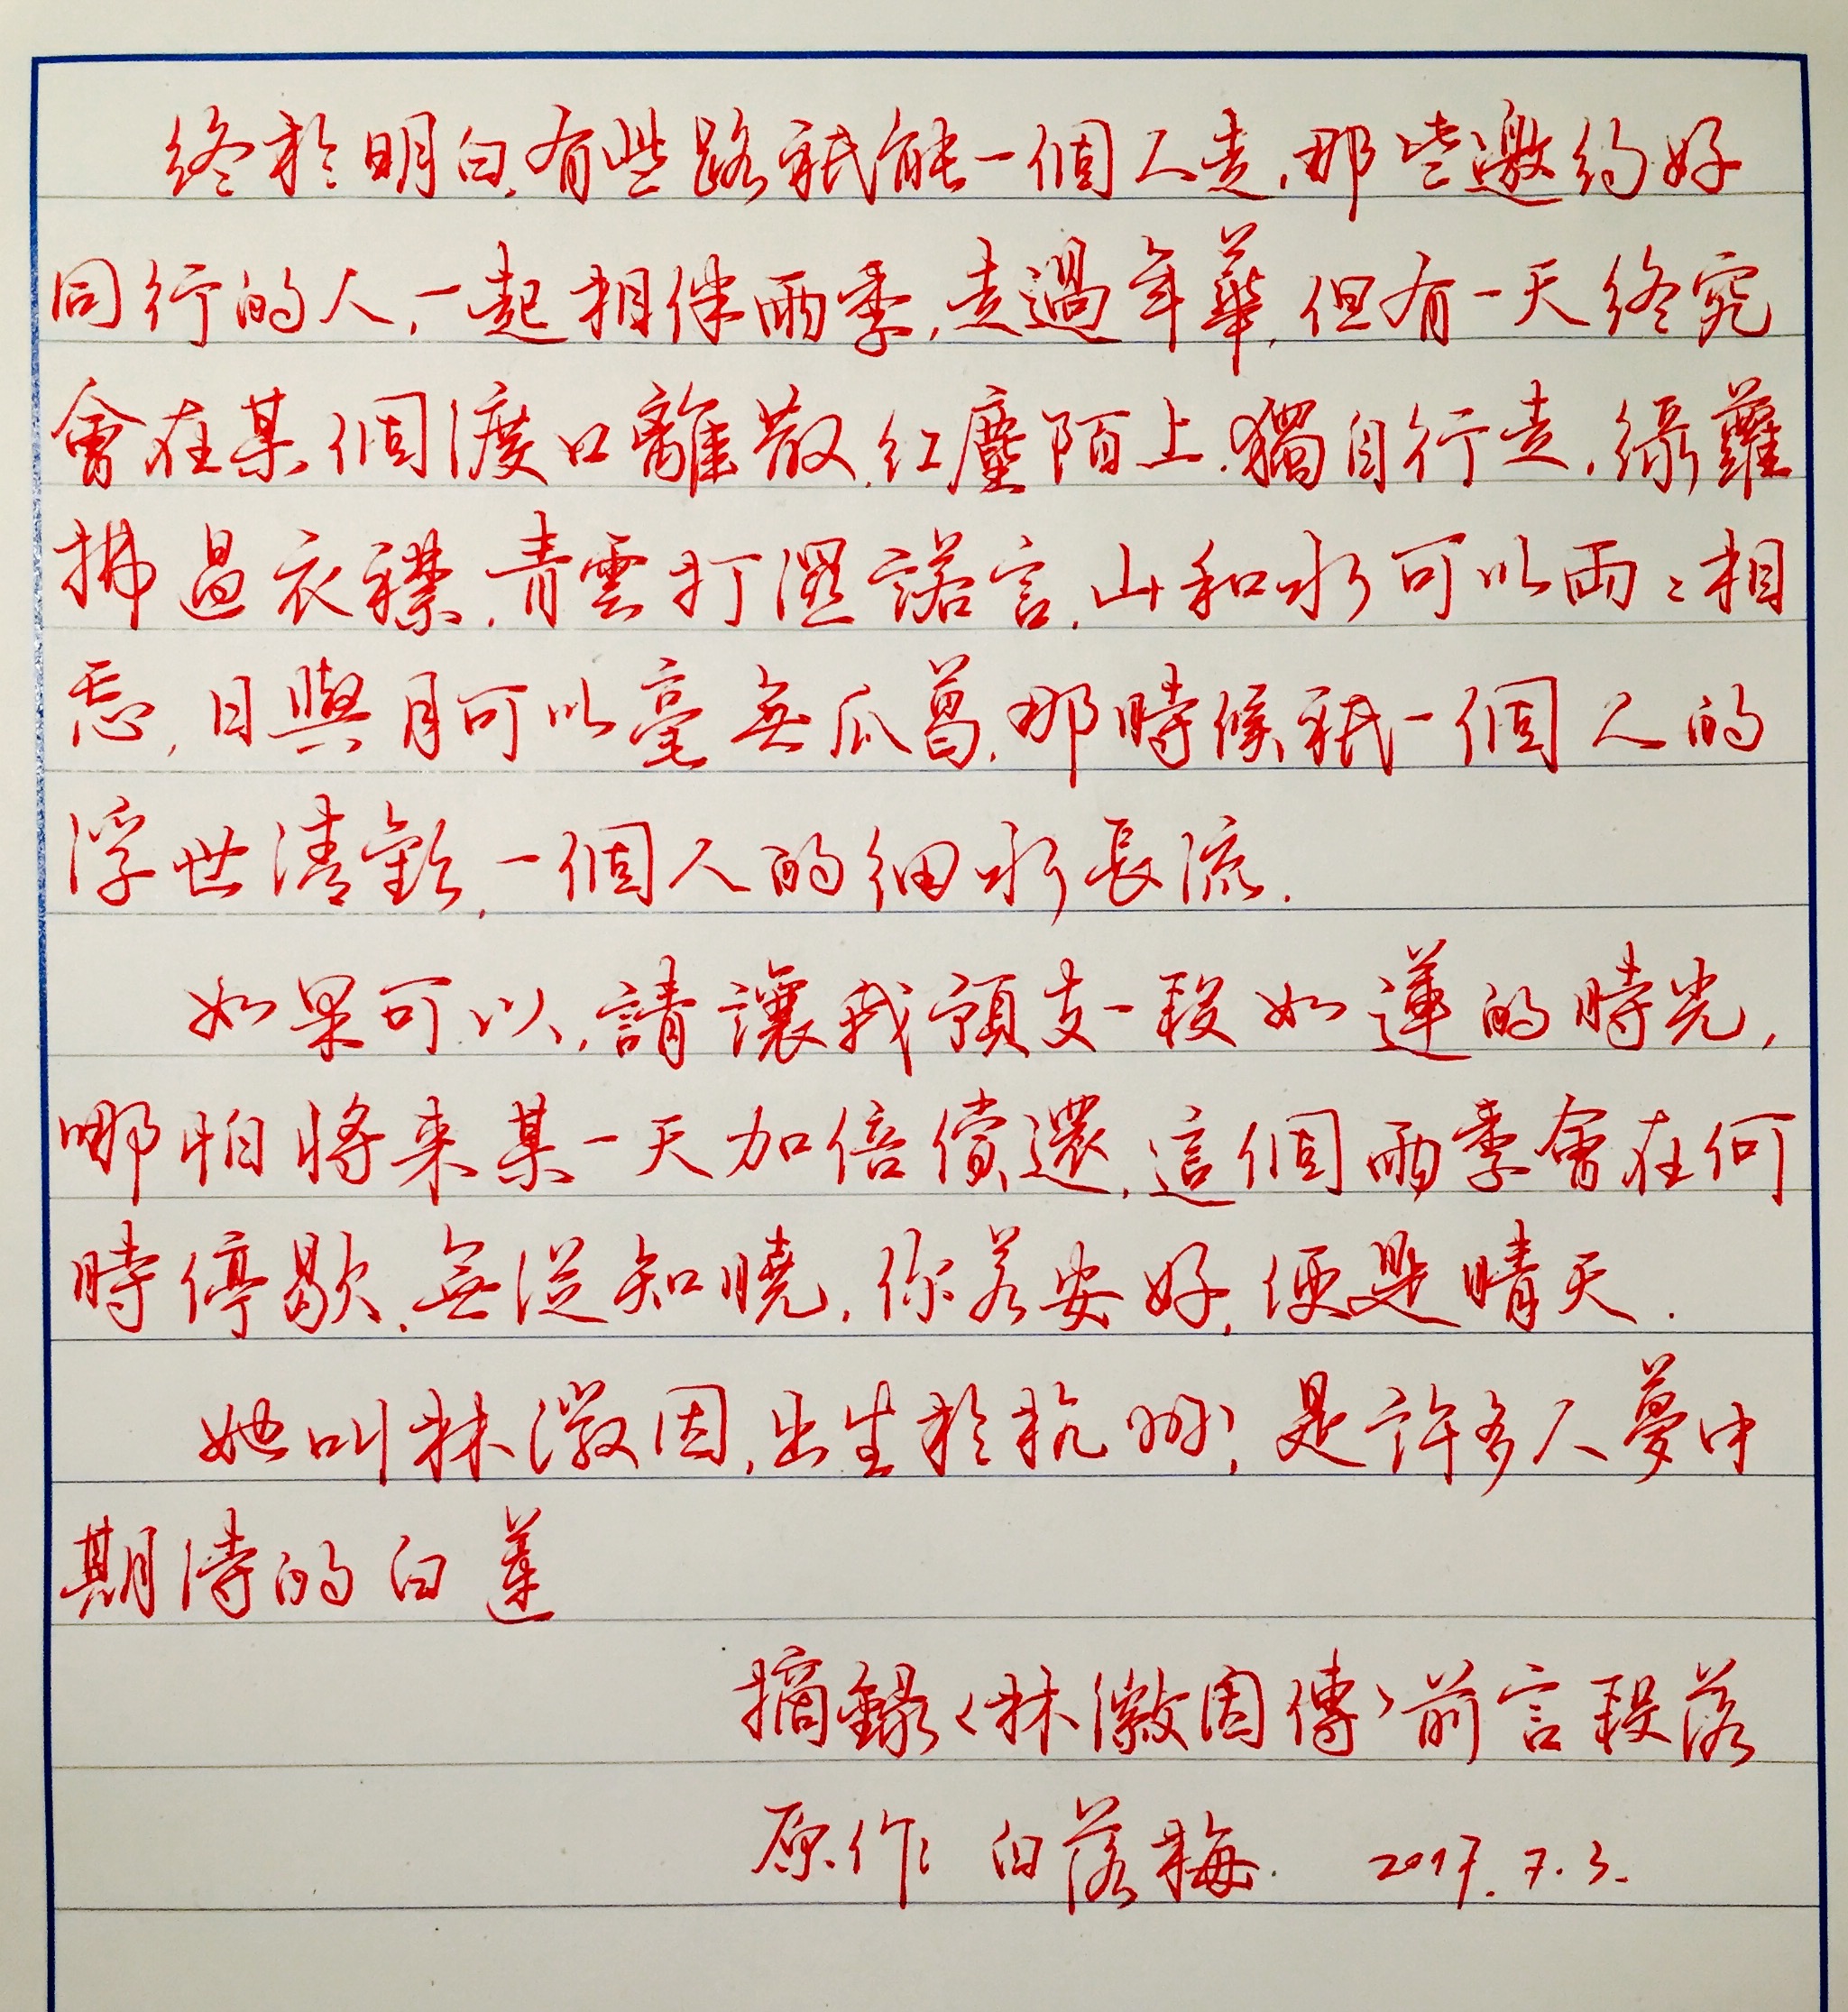 終於明白,有些路祇能一個人走,那些邀約好
同行的人,一起相伴雨季,走過年華,但有一天終究
會在某個渡口離散,紅塵陌上,獨自行走,綠蘿
拂過衣襟,青雲打濕諾言,山和水可以兩々相
忘,日與月可以毫無瓜葛,那時候祇一個人的
浮世清歡,一個人的細水長流.
如果可以,請讓我預支一段如蓮的時光,
哪怕將来某一天加倍償還,這個雨季會在何
時停歇,無從知曉,你若安好,便是晴天.
她叫林徽因,出生於杭州,是許多人夢中
期待的白蓮
摘錄<林徽因傳>前言段落
原作:白落梅. 2017.7.3.